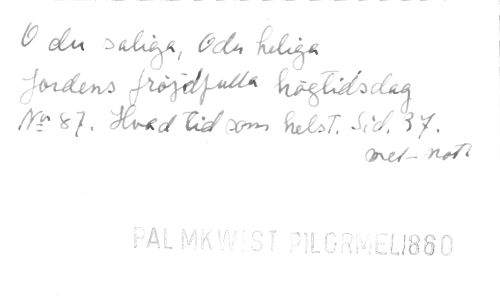 O du saliga, O du heliga
Jordens fröjdfulla högtidsdag
No 87. Hvad tid som helst. Sid. 37.
met- not
PALMKWIST PILGRMEL1860